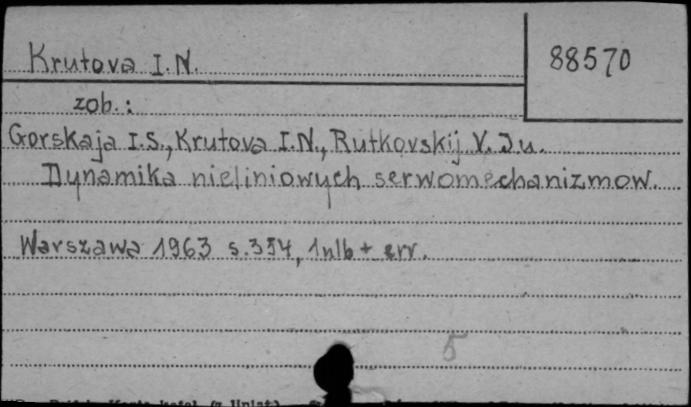 Krutova I.N.
88570
zob.:
Gorskaja I.S., Krutova I.N., Rutkovskij V. Ju.
Dynamika nieliniowych serwomechanizmow.
Warszawa 1963 s.354, 1nlb + err.
5